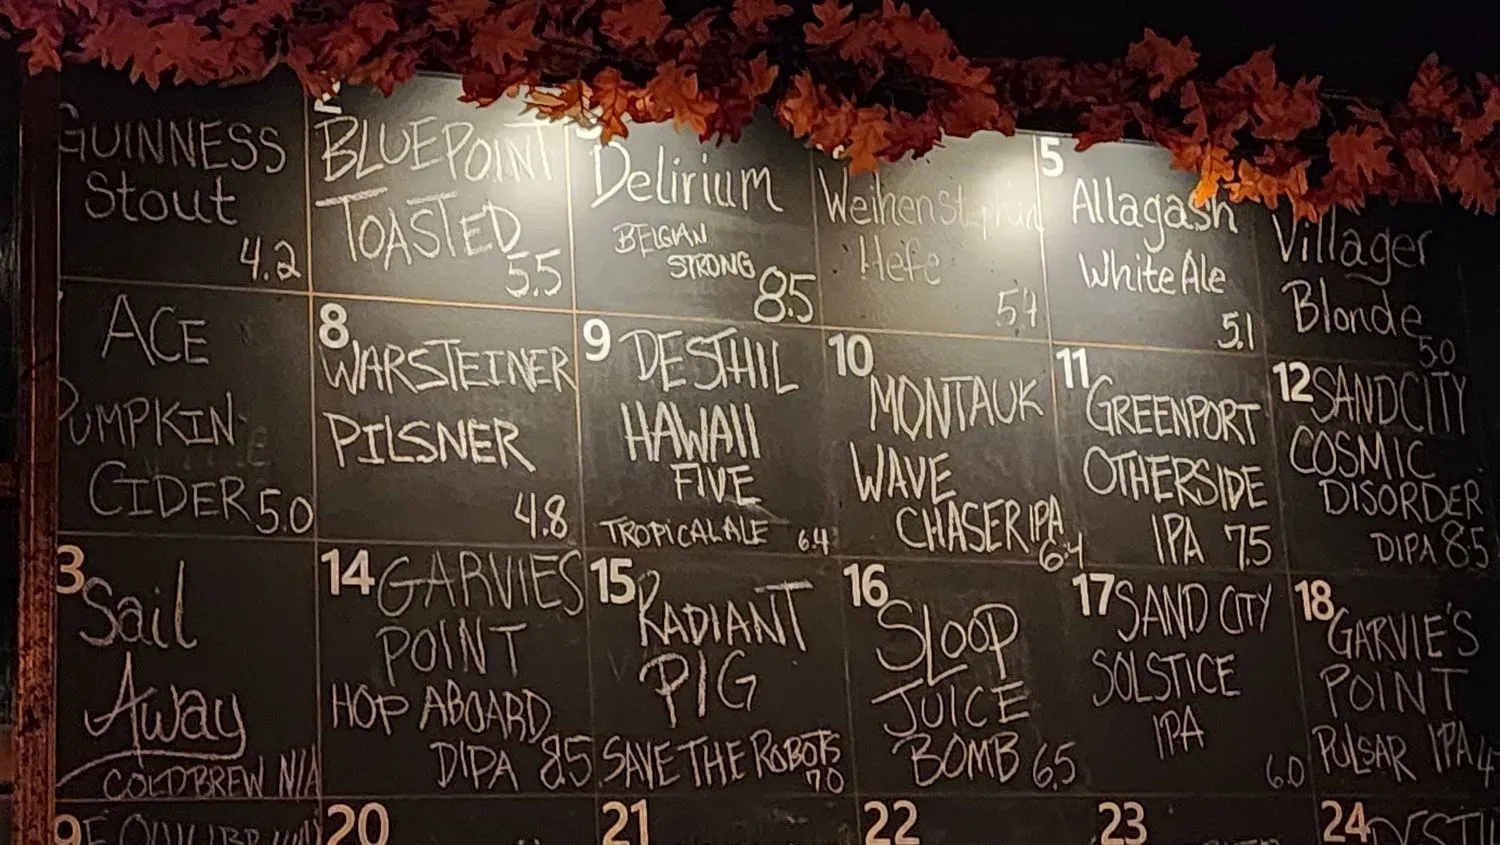 GUINNESS
Stout
4.2
2
BLUEPOINT
TOASTED
5.5
Delirium
BELGIAN
STRONG
8.5
Hefe
5.4
5
Allagash
White Ale
5.1
Villager
Blonde
5.0
ACE
PUMPKIN
CIDER 5.0
8
WARSTEINER
PILSNER
4.8
9
DESTHIL
HAWAII
FIVE
TROPICAL ALE 6.4
10
MONTAUK
WAVE
CHASER IPA
6.4
11
GREENPORT
OTHERSIDE
IPA 7.5
12
SANDCITY
COSMIC
DISORDER
DIPA 8.5
3
Sail
Away
COLDBREW N/A
14
GARVIES
POINT
HOP ABOARD
DIPA 8.5
15
RADIANT
PIG
SAVE THE ROBOTS
7.0
16
SLOOP
JUICE
BOMB 6.5
17
SAND CITY
SOLSTICE
IPA
6.0
18
GARVIE'S
POINT
PULSAR IPA
9
20
21
22
23
24